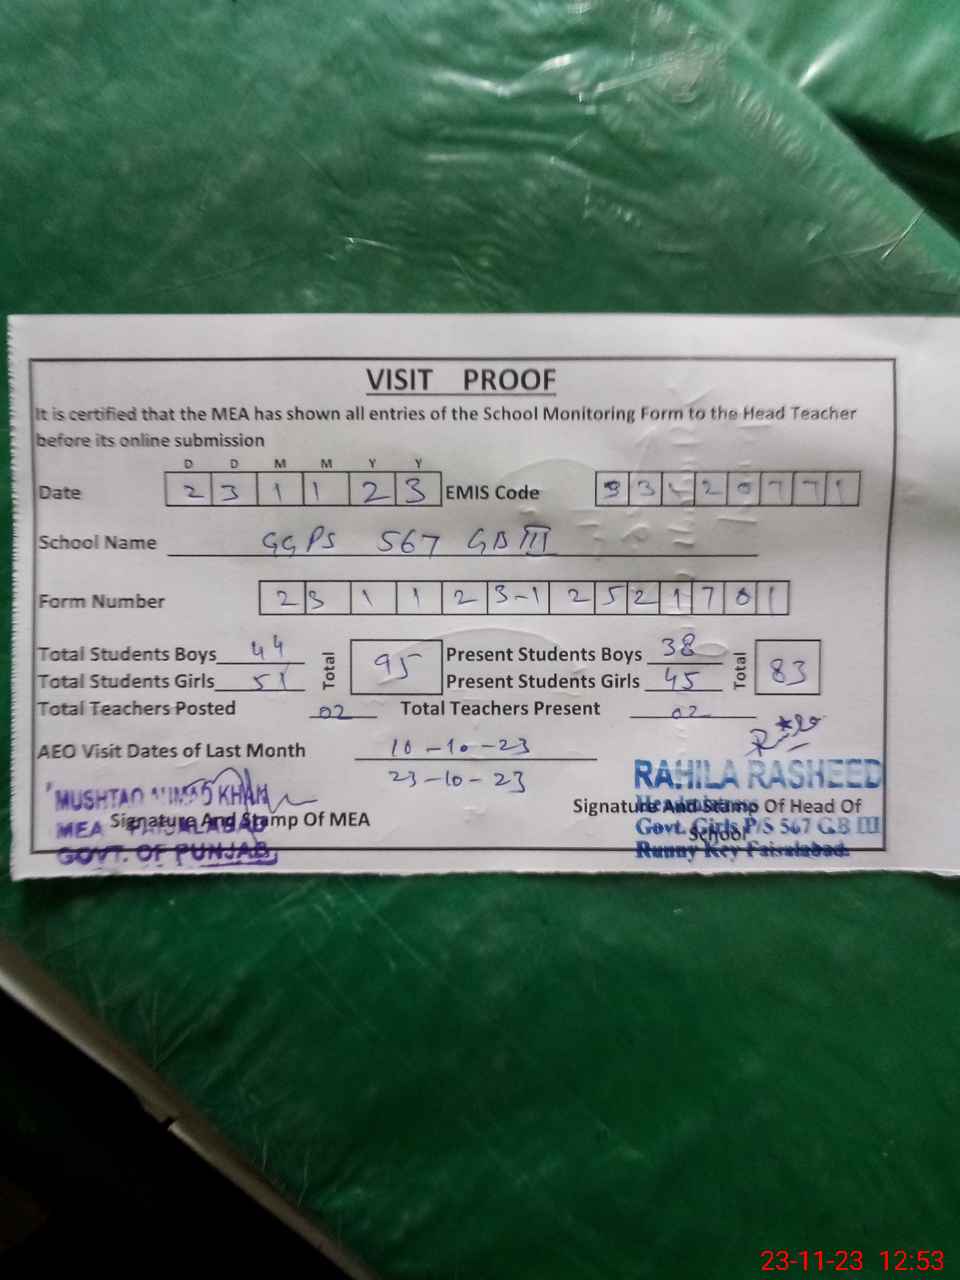 VISIT PROOF
It is certified that the MEA has shown all entries of the School Monitoring Form to the Head Teacher
before its online submission
D D M M Y Y
Date 2 3 1 1 2 3 EMIS Code
School Name GGPS 567 GB III
Form Number 2 3 1 1 2 3-1 2 5 2 1 7 0 1
Total Students Boys 44 Total 95 Present Students Boys 38 Total 83
Total Students Girls 51 Present Students Girls 45
Total Teachers Posted 02 Total Teachers Present 02
AEO Visit Dates of Last Month 10-10-23
23-10-23
MUSHTAQ AHMAD KHAN
MEA FAISALABAD
GOVT. OF PUNJAB
Signature And Stamp Of MEA
RAHILA RASHEED
Govt. Girls P/S 567 GB III
Faisalabad.
Signature And Stamp Of Head Of
School
23-11-23 12:53